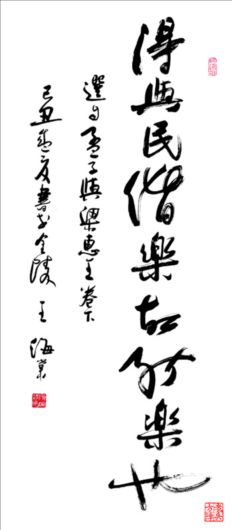 得與民偕樂故能樂也
選自孟子與梁惠王卷下
己丑盛夏書於金陵 王海